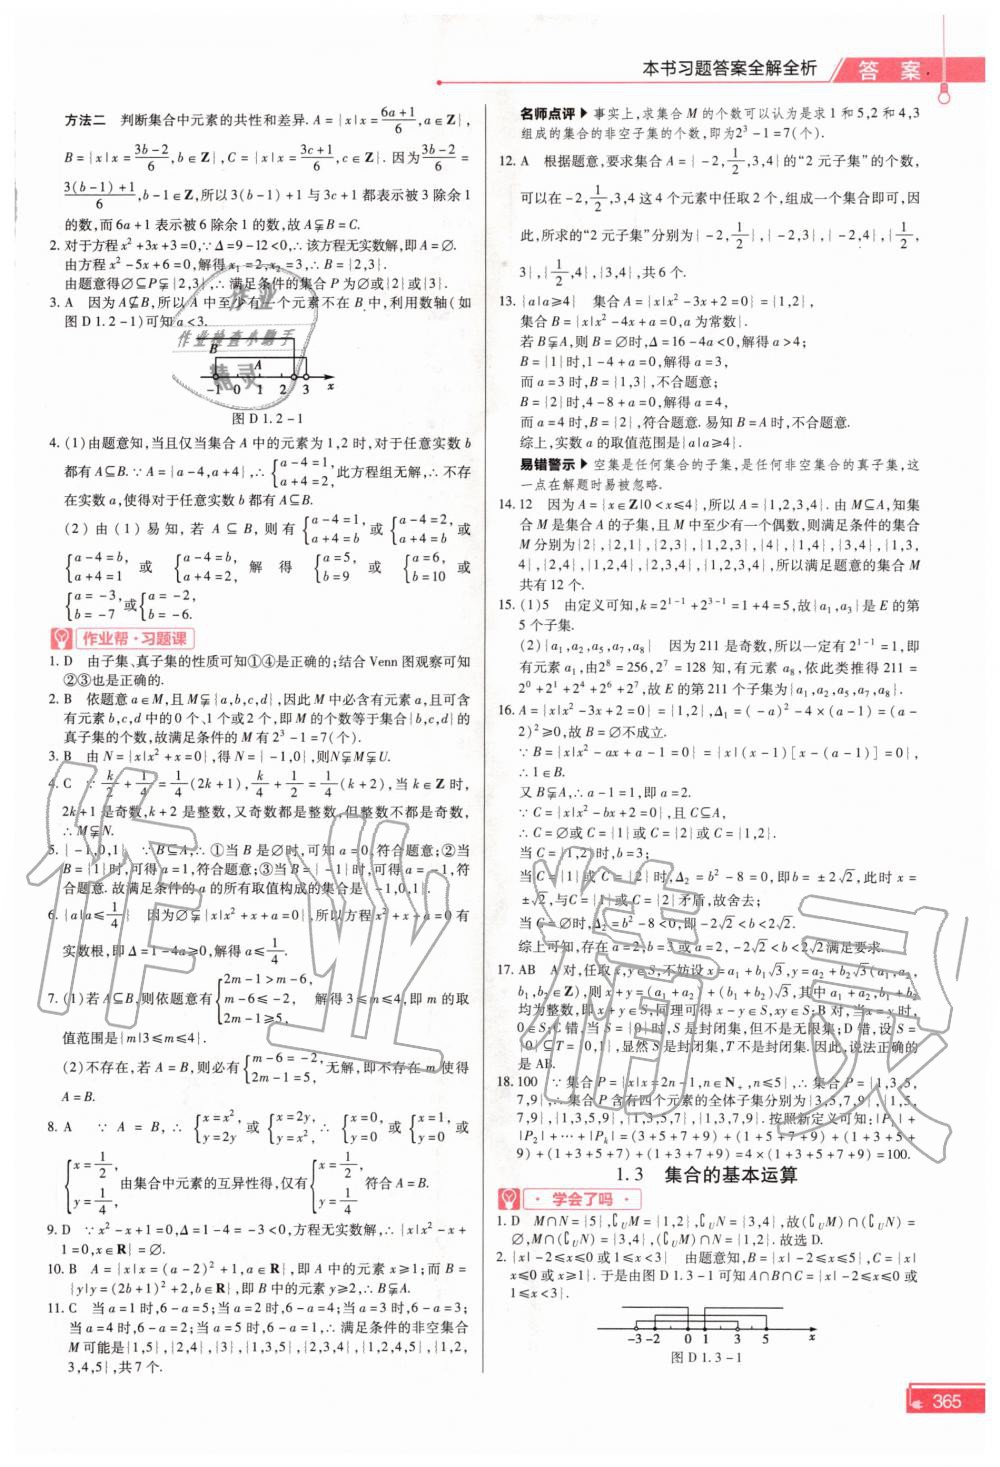 本书习题答案全解全析 答案
方法二 判断集合中元素的共性和差异. A={x|x=\frac{6a+1}{6},a∈Z},
B={x|x=\frac{3b-2}{6},b∈Z},C={x|x=\frac{3c+1}{6},c∈Z}. 因为\frac{3b-2}{6}=
\frac{3(b-1)+1}{6},b-1∈Z,所以3(b-1)+1与3c+1都表示被3除余1
的数,而6a+1表示被6除余1的数,故A⫋B=C.
2. 对于方程x²+3x+3=0,∵Δ=9-12<0,∴该方程无实数解,即A=∅.
由方程x²-5x+6=0,解得x₁=2,x₂=3,∴B={2,3}.
由题意得∅⊆P⫋{2,3},∴满足条件的集合P为∅或{2}或{3}.
3. A 因为A⊈B,所以A中至少有一个元素不在B中,利用数轴(如
图D1.2-1)可知a<3.
B
A
-1 0 1 2 3 x
图D1.2-1
4. (1)由题意知,当且仅当集合A中的元素为1,2时,对于任意实数b
都有A⊆B.∵A={a-4,a+4},∴{a-4=1, a+4=2,此方程组无解,∴不存
在实数a,使得对于任意实数b都有A⊆B.
(2)由(1)易知,若A⊆B,则有{a-4=1, a+4=b 或{a-4=2, a+4=b 或
{a-4=b, a+4=1 或{a-4=b, a+4=2, 解得{a=5, b=9 或{a=6, b=10 或
{a=-3, b=-7 或{a=-2, b=-6.
作业帮·习题课
1. D 由子集、真子集的性质可知①④是正确的;结合Venn图观察可知
②③也是正确的.
2. B 依题意a∈M,且M⫋{a,b,c,d},因此M中必含有元素a,且可含
有元素b,c,d中的0个、1个或2个,即M的个数等于集合{b,c,d}的
真子集的个数,故满足条件的M有2³-1=7(个).
3. B 由N={x|x²+x=0},得N={-1,0},则N⫋M⫋U.
4. C ∵\frac{k}{2}+\frac{1}{4}=\frac{1}{4}(2k+1),\frac{k}{4}+\frac{1}{2}=\frac{1}{4}(k+2),当k∈Z时,
2k+1是奇数,k+2是整数,又奇数都是整数,但整数不都是奇数,
∴M⫋N.
5. {-1,0,1} ∵B⊆A,∴①当B是∅时,可知a=0,符合题意;②当
B={1}时,可得a=1,符合题意;③当B={-1}时,可得a=-1,符
合题意.故满足条件的a的所有取值构成的集合是{-1,0,1}.
6. {a|a≤\frac{1}{4}} 因为∅⫋{x|x²+x+a=0},所以方程x²+x+a=0有
实数根,即Δ=1-4a≥0,解得a≤\frac{1}{4}.
7. (1)若A⊆B,则依题意有{2m-1>m-6, m-6≤-2, 2m-1≥5, 解得3≤m≤4,即m的取
值范围是{m|3≤m≤4}.
(2)不存在,若A=B,则必有{m-6=-2, 2m-1=5, 无解,即不存在m使得
A=B.
8. A ∵A=B,∴{x=x², y=2y 或{x=2y, y=x², ∴{x=0, y=0 或{x=1, y=0 或
{x=\frac{1}{2}, y=\frac{1}{4}, 由集合中元素的互异性得,仅有{x=\frac{1}{2}, y=\frac{1}{4} 符合A=B.
9. D ∵x²-x+1=0,Δ=1-4=-3<0,方程无实数解,∴{x|x²-x+
1=0,x∈R}=∅.
10. B A={x|x=(a-2)²+1,a∈R},即A中的元素x≥1;而B=
{y|y=(2b+1)²+2,b∈R},即B中的元素y≥2,∴B⫋A.
11. C 当a=1时,6-a=5;当a=2时,6-a=4;当a=3时,6-a=3;
当a=4时,6-a=2;当a=5时,6-a=1,∴满足条件的非空集合
M可能是{1,5},{2,4},{3},{1,3,5},{2,3,4},{1,2,4,5},{1,2,
3,4,5},共7个.
名师点评 事实上,求集合M的个数可以认为是求1和5,2和4,3
组成的集合的非空子集的个数,即为2³-1=7(个).
12. A 根据题意,要求集合A={-2,\frac{1}{2},3,4}的“2元子集”的个数,
可以在-2,\frac{1}{2},3,4这4个元素中任取2个,组成一个集合即可,因
此,所求的“2元子集”分别为{-2,\frac{1}{2}},{-2,3},{-2,4},{\frac{1}{2},
3},{\frac{1}{2},4},{3,4},共6个.
13. {a|a≥4} 集合A={x|x²-3x+2=0}={1,2},
集合B={x|x²-4x+a=0,a为常数}.
若B⫋A,则B=∅时,Δ=16-4a<0,解得a>4;
B={1}时,1-4+a=0,解得a=3,
而a=3时,B={1,3},不合题意;
B={2}时,4-8+a=0,解得a=4,
而a=4时,B={2},符合题意.易知B=A时,不合题意.
综上,实数a的取值范围是{a|a≥4}.
易错警示 空集是任何集合的子集,是任何非空集合的真子集,这
一点在解题时易被忽略.
14. 12 因为A={x∈Z|0<x≤4},所以A={1,2,3,4}.由M⊆A,知集
合M是集合A的子集,且M中至少有一个偶数,则满足条件的集合
M分别为{2},{2,1},{2,3},{1,2,3},{4},{1,4},{3,4},{1,3,
4},{2,4},{1,2,4},{2,3,4},{1,2,3,4},所以满足题意的集合M
共有12个.
15. (1)5 由定义可知,k=2¹⁻¹+2³⁻¹=1+4=5,故{a₁,a₃}是E的第
5个子集.
(2){a₁,a₂,a₅,a₇,a₈} 因为211是奇数,所以一定有2¹⁻¹=1,即
有元素a₁,由2⁸=256,2⁷=128知,有元素a₈,依此类推得211=
2⁰+2¹+2⁴+2⁶+2⁷,故E的第211个子集为{a₁,a₂,a₅,a₇,a₈}.
16. A={x|x²-3x+2=0}={1,2},Δ₁=(-a)²-4×(a-1)=(a-
2)²≥0,故B=∅不成立.
∵B={x|x²-ax+a-1=0}={x|(x-1)[x-(a-1)]=0},
∴1∈B.
又B⫋A,∴a-1=1,即a=2.
∵C={x|x²-bx+2=0},且C⊆A,
∴C=∅或C={1}或C={2}或C={1,2}.
当C={1,2}时,b=3;
当C={1}或C={2}时,Δ₂=b²-8=0,即b=±2√2,此时x=
±√2,与C={1}或C={2}矛盾,故舍去;
当C=∅时,Δ₂=b²-8<0,即-2√2<b<2√2.
综上可知,存在a=2,b=3或-2√2<b<2√2满足要求.
17. AB A对,任取x,y∈S,不妨设x=a₁+b₁√3,y=a₂+b₂√3(a₁,a₂,
b₁,b₂∈Z),则x+y=(a₁+a₂)+(b₁+b₂)√3,其中a₁+a₂,b₁+b₂
均为整数,即x+y∈S,同理可得x-y∈S,xy∈S;B对,当x=y时,
0∈S;C错,当S={0}时,S是封闭集,但不是无限集;D错,设S=
{0}⊆T={0,1},显然S是封闭集,T不是封闭集.因此,说法正确的
是AB.
18. 100 ∵集合P={x|x=2n-1,n∈N₊,n≤5},∴集合P={1,3,5,
7,9},∴集合P含有四个元素的全体子集分别为{3,5,7,9},{1,5,
7,9},{1,3,5,9},{1,3,5,7},{1,3,7,9}.按照新定义可知:|P₁|+
|P₂|+⋯+|Pₖ|=(3+5+7+9)+(1+5+7+9)+(1+3+5+
9)+(1+3+5+7)+(1+3+7+9)=4×(1+3+5+7+9)=100.
1.3 集合的基本运算
学会了吗
1. D M∩N={5},∁ᵤM={1,2},∁ᵤN={3,4},故(∁ᵤM)∩(∁ᵤN)=
∅,M∩(∁ᵤN)={3,4},(∁ᵤM)∩N={1,2}.故选D.
2. {x|-2≤x≤0或1≤x<3} 由题意知,B={x|-2≤x≤5},C={x|
x≤0或x≥1}.于是由图D1.3-1可知A∩B∩C={x|-2≤x≤0或
1≤x<3}.
-3 -2 0 1 3 5 x
图D1.3-1
365
作业
作业检查小助手
精灵
作业精灵